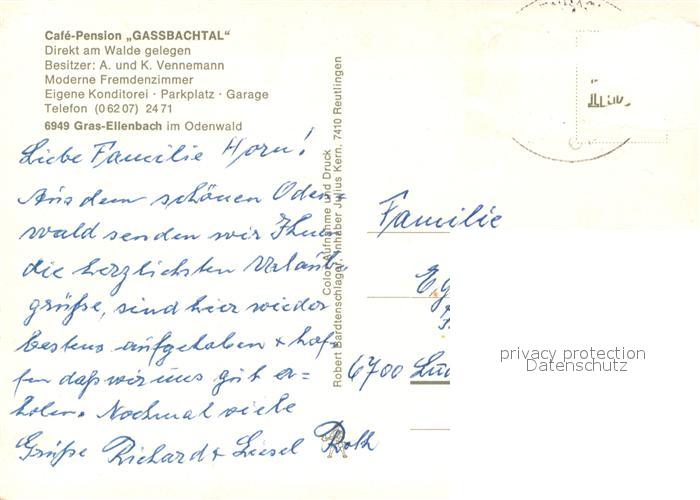 Café-Pension „GASSBACHTAL"
Direkt am Walde gelegen
Besitzer: A. und K. Vennemann
Moderne Fremdenzimmer
Eigene Konditorei · Parkplatz · Garage
Telefon (0 62 07) 24 71
6949 Gras-Ellenbach im Odenwald
Liebe Familie Horn!
Aus dem schönen Oden-
wald senden wir Ihnen
die herzlichsten Urlaub-
grüße, sind hier wieder
bestens aufgehoben + hof-
fen daß wir uns gut er=
holen. Nochmal viele
Grüße Richard + Liesel Roth
Color-Aufnahme und Druck
Robert Bardtenschlager, Inhaber Julius Kern, 7410 Reutlingen
Familie
6700
privacy protection
Datenschutz